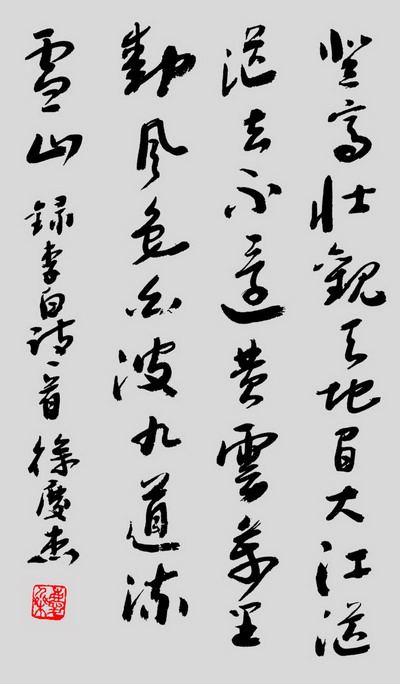 登高壮觀天地間大江茫
茫去不還黃雲萬里
動風色白波九道流
雪山 録李白詩一首 徐慶杰